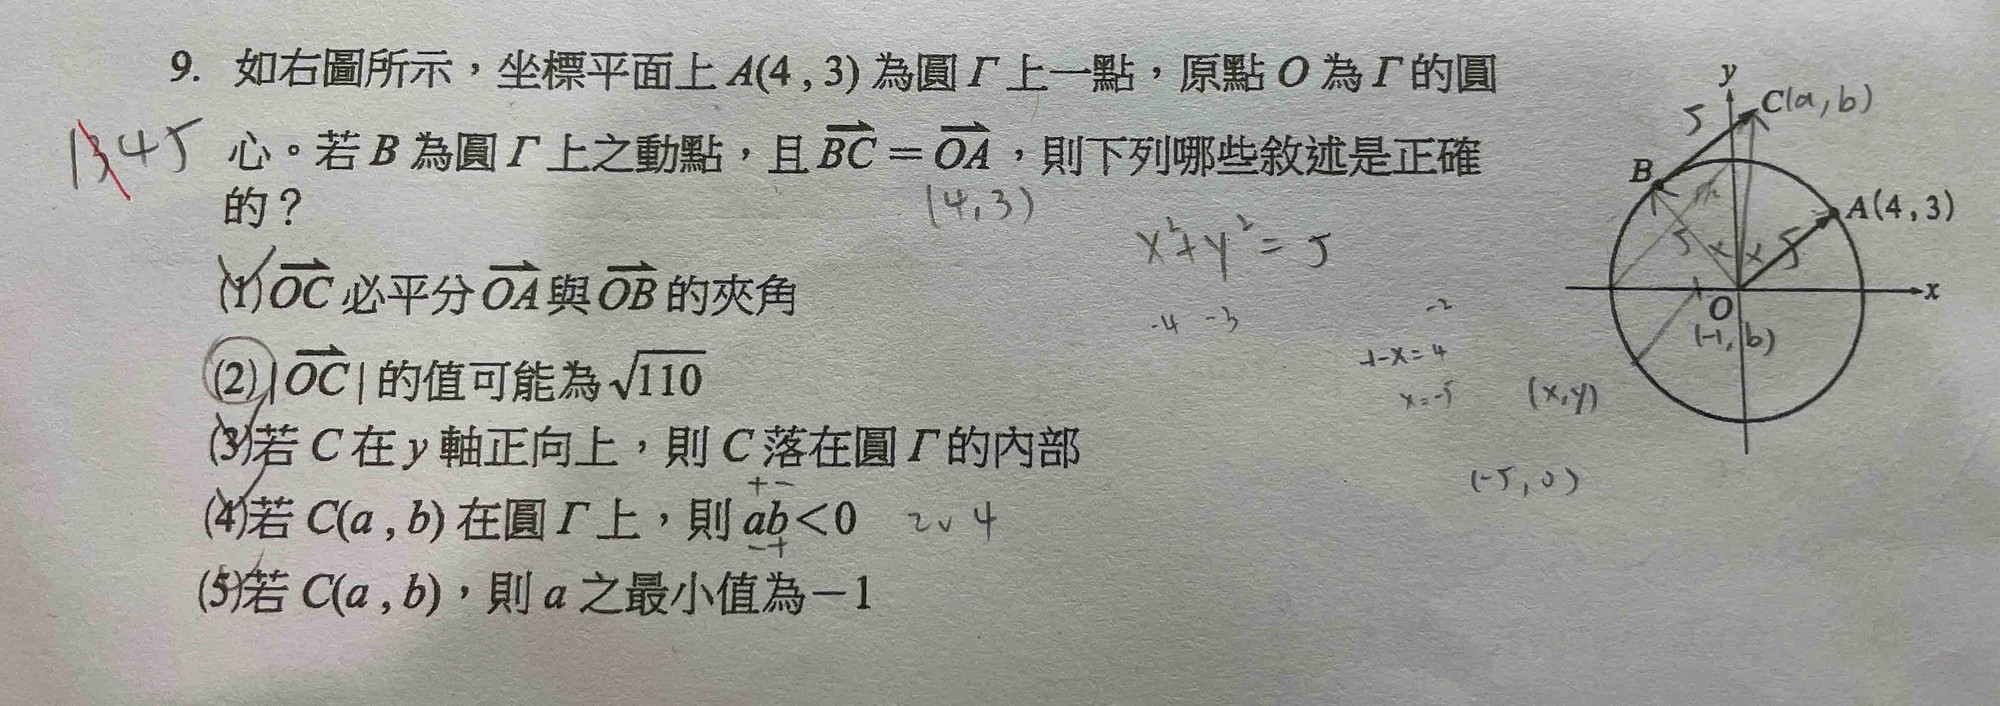 9. 如右圖所示，坐標平面上 A(4 , 3) 為圓 Γ 上一點，原點 O 為 Γ 的圓
心。若 B 為圓 Γ 上之動點，且 BC = OA ，則下列哪些敘述是正確
的？
(1) OC 必平分 OA 與 OB 的夾角
(2) | OC | 的值可能為 √110
(3) 若 C 在 y 軸正向上，則 C 落在圓 Γ 的內部
(4) 若 C(a , b) 在圓 Γ 上，則 ab＜0
(5) 若 C(a , b)，則 a 之最小值為－1
1345
(4,3)
x²+y²=5
-4 -3
+-
-+
2v4
-2
-1-x=4
x=-5
(x,y)
(-5,0)
y
C(a,b)
5
B
A(4,3)
5
x x
5
O
x
(-1,b)